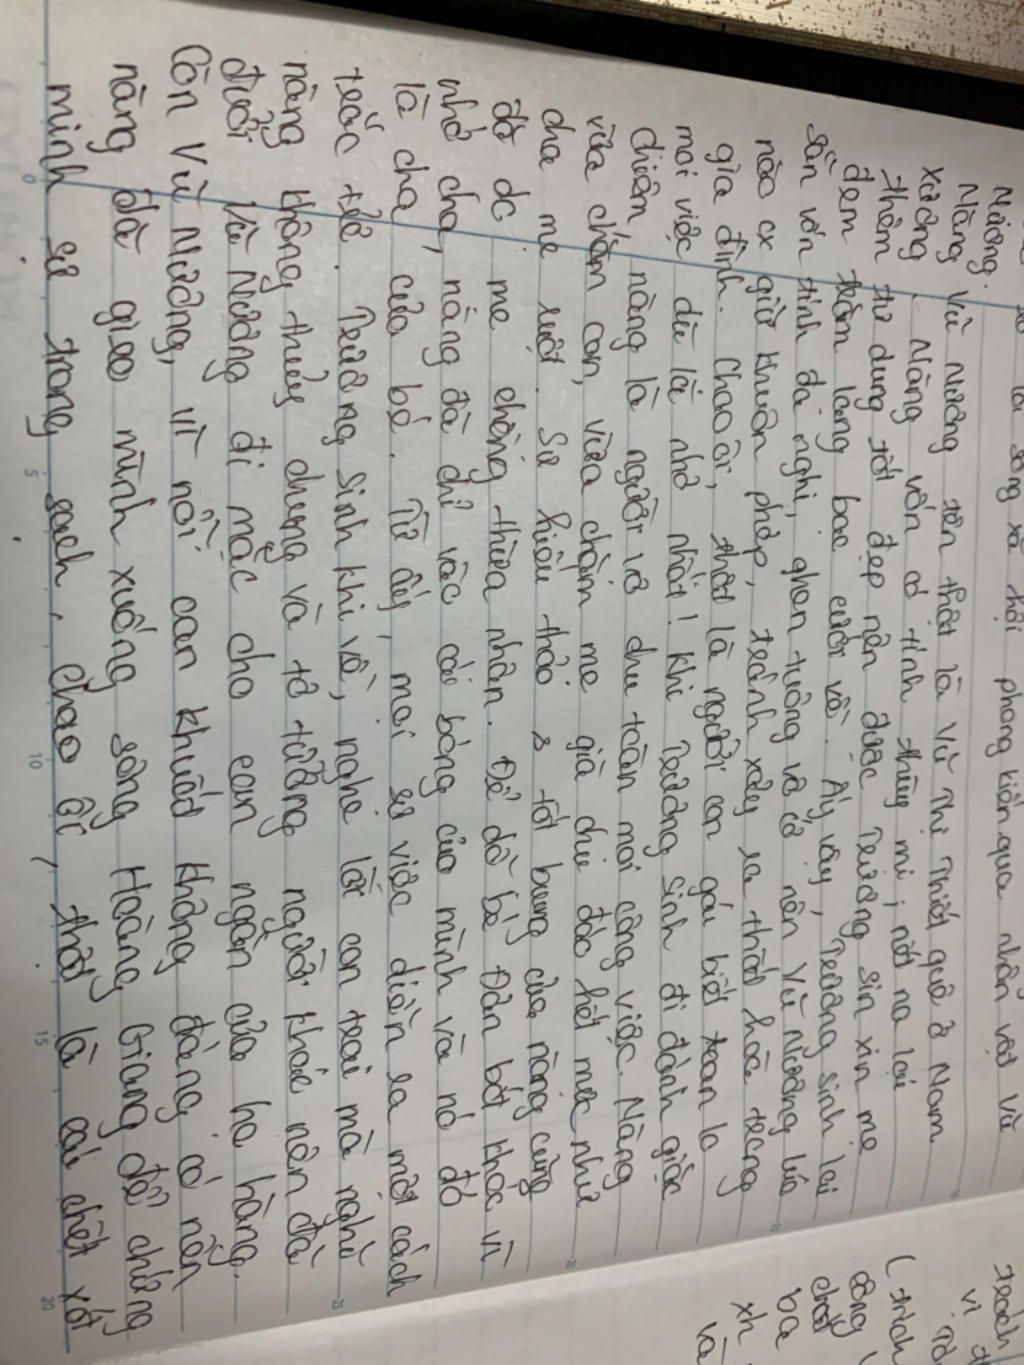 lối sống xã hội phong kiến qua nhân vật Vũ
Nương.
Nàng Vũ Nương tên thật là Vũ Thị Thiết quê ở Nam
Xương. Nàng vốn có tính thùy mị, nết na lại
thêm tư dung tốt đẹp nên được Trương sin xin mẹ
đem trăm lạng bạc cưới về. Ấy vậy, Trương sinh lại
sẵn vốn tính đa nghi, ghen tuông vô cớ nên Vũ Nương lúc
nào cx giữ khuôn phép, tránh xảy ra thất hòa trong
gia đình. Chao ôi, thật là người con gái biết toan lo
mọi việc dù là nhỏ nhất! Khi Trương sinh đi đánh giặc
chiến, nàng là người vợ chu toàn mọi công việc. Nàng
vừa chăm con, vừa chăm mẹ già chu đáo hết mực như
cha mẹ ruột. Sự hiếu thảo & tốt bụng của nàng cũng
đã dc mẹ chồng thừa nhận. Để dỗ bé Đản bớt khóc vì
nhớ cha, nàng đã chỉ vào cái bóng của mình và nó đó
là cha của bé. Từ ấy, mọi sự việc diễn ra một cách
trắc trở. Trương sinh khi về, nghe lời con trai mà nghi
nàng không thủy chung và tơ tưởng người khác nên đã
đuổi Vũ Nương đi mặc cho can ngăn của họ hàng.
Còn Vũ Nương, vì nỗi oan khuất không đáng có nên
nàng đã gieo mình xuống sông Hoàng Giang để chứng
minh sự trong sạch. Chao ôi, thật là cái chết xót
trách
vì
(trích
công
chất
ba
xh
và